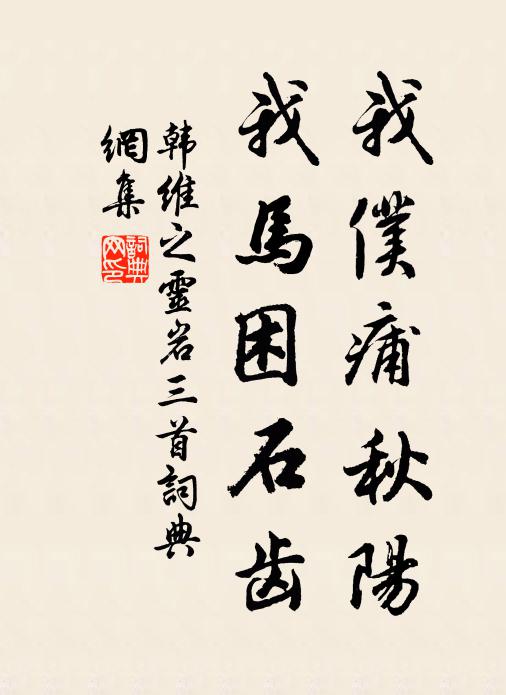 我僕痡秋陽
我馬困石齿
韩维之靈岩三首詞典
網集
詞典
网印